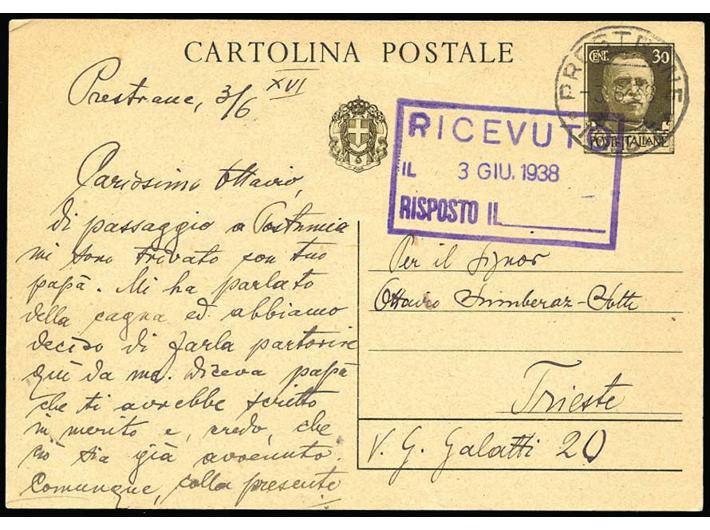 CARTOLINA POSTALE
Prestrane, 3/6 XVI
CENT. 30
POSTE ITALIANE
PRESTRANE
RICEVUTO
IL 3 GIU. 1938
RISPOSTO IL
Carissimo Ottavio,
di passaggio a Postumia
mi sono trovato con tuo
papà. Mi ha parlato
della cagna ed abbiamo
deciso di farla partorire
quì da me. Diceva papà
che ti avrebbe scritto
in merito e, credo, che
ciò sia già avvenuto.
Comunque, colla presente
Per il Signor
Ottavio
Trieste
V. G. Galatti 20